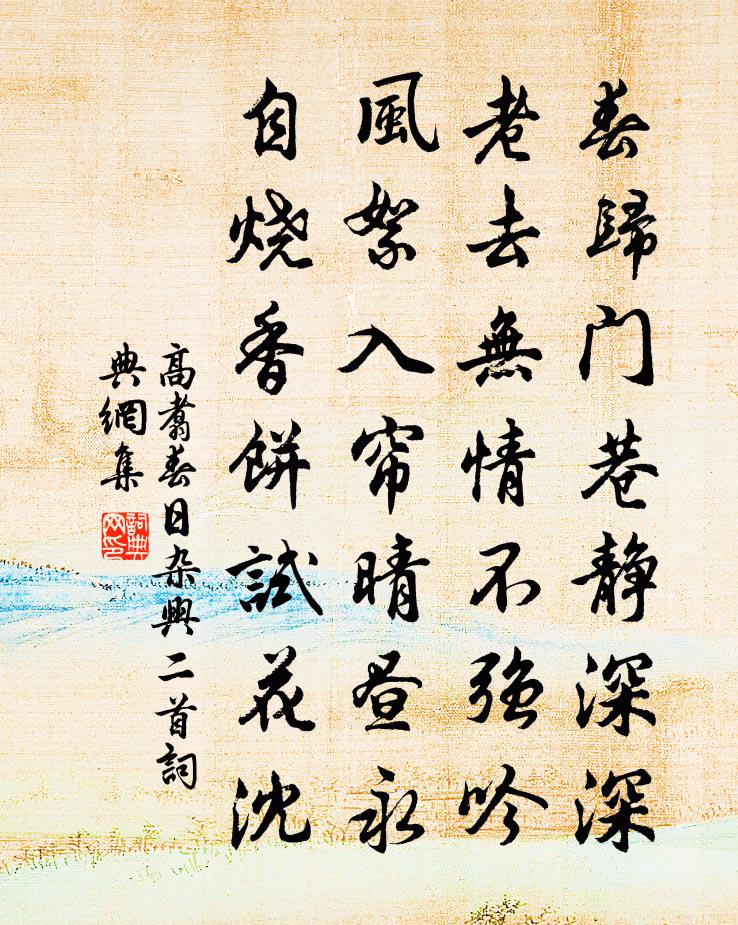 春歸门巷静深深
老去無情不强吟
風絮入帘晴昼永
自烧香餅試花沈
高翥春日杂興二首詞
典網集
詞典
网印